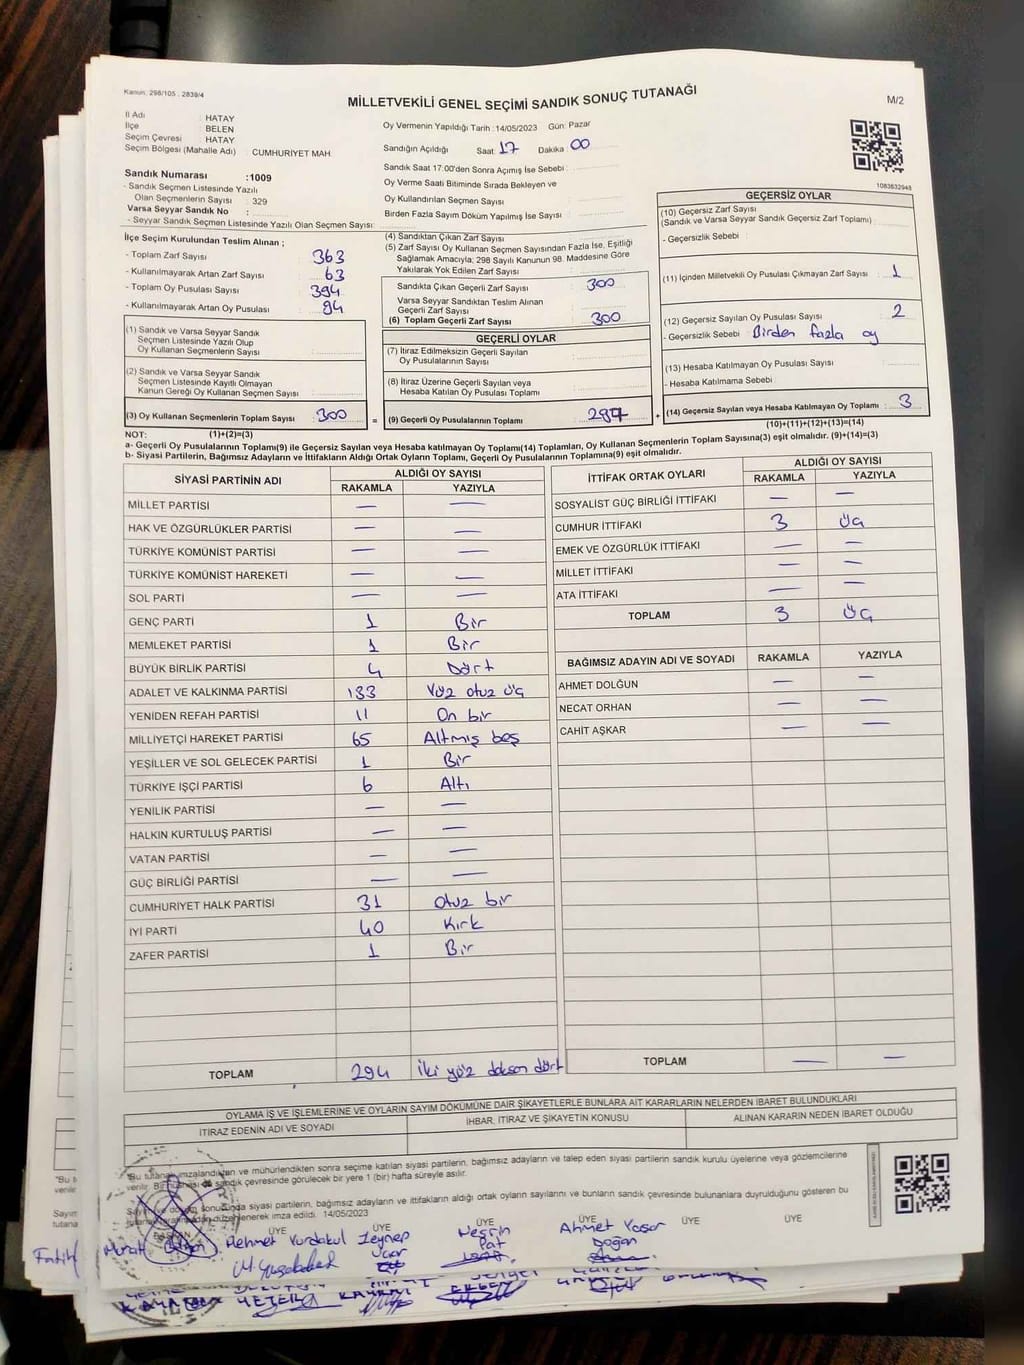 Kanun, 298/105 , 2839/4
MİLLETVEKİLİ GENEL SEÇİMİ SANDIK SONUÇ TUTANAĞI
M/2
İl Adı : HATAY
İlçe : BELEN
Seçim Çevresi : HATAY
Seçim Bölgesi (Mahalle Adı) : CUMHURİYET MAH
Sandık Numarası :1009
- Sandık Seçmen Listesinde Yazılı
Olan Seçmenlerin Sayısı : 329
Varsa Seyyar Sandık No :
- Seyyar Sandık Seçmen Listesinde Yazılı Olan Seçmen Sayısı:
Oy Vermenin Yapıldığı Tarih :14/05/2023 Gün: Pazar
Sandığın Açıldığı Saat: 17 Dakika: 00
Sandık Saat 17:00'den Sonra Açımış İse Sebebi :
Oy Verme Saati Bitiminde Sırada Bekleyen ve
Oy Kullandırılan Seçmen Sayısı :
Birden Fazla Sayım Döküm Yapılmış İse Sayısı :
1083632948
İlçe Seçim Kurulundan Teslim Alınan ;
- Toplam Zarf Sayısı : 363
- Kullanılmayarak Artan Zarf Sayısı : 63
- Toplam Oy Pusulası Sayısı : 394
- Kullanılmayarak Artan Oy Pusulası : 94
(1) Sandık ve Varsa Seyyar Sandık
Seçmen Listesinde Yazılı Olup
Oy Kullanan Seçmenlerin Sayısı :
(2) Sandık ve Varsa Seyyar Sandık
Seçmen Listesinde Kayıtlı Olmayan
Kanun Gereği Oy Kullanan Seçmen Sayısı :
(3) Oy Kullanan Seçmenlerin Toplam Sayısı : 300
(1)+(2)=(3)
(4) Sandıktan Çıkan Zarf Sayısı :
(5) Zarf Sayısı Oy Kullanan Seçmen Sayısından Fazla İse, Eşitliği
Sağlamak Amacıyla; 298 Sayılı Kanunun 98. Maddesine Göre
Yakılarak Yok Edilen Zarf Sayısı :
Sandıkta Çıkan Geçerli Zarf Sayısı : 300
Varsa Seyyar Sandıktan Teslim Alınan
Geçerli Zarf Sayısı :
(6) Toplam Geçerli Zarf Sayısı : 300
GEÇERLİ OYLAR
(7) İtiraz Edilmeksizin Geçerli Sayılan
Oy Pusulalarının Sayısı :
(8) İtiraz Üzerine Geçerli Sayılan veya
Hesaba Katılan Oy Pusulası Toplamı :
= (9) Geçerli Oy Pusulalarının Toplamı : 297 +
GEÇERSİZ OYLAR
(10) Geçersiz Zarf Sayısı
(Sandık ve Varsa Seyyar Sandık Geçersiz Zarf Toplamı) :
- Geçersizlik Sebebi :
(11) İçinden Milletvekili Oy Pusulası Çıkmayan Zarf Sayısı : 1
(12) Geçersiz Sayılan Oy Pusulası Sayısı : 2
- Geçersizlik Sebebi : Birden fazla oy
(13) Hesaba Katılmayan Oy Pusulası Sayısı :
- Hesaba Katılmama Sebebi :
(14) Geçersiz Sayılan veya Hesaba Katılmayan Oy Toplamı : 3
(10)+(11)+(12)+(13)=(14)
NOT:
a- Geçerli Oy Pusulalarının Toplamı(9) ile Geçersiz Sayılan veya Hesaba katılmayan Oy Toplamı(14) Toplamları, Oy Kullanan Seçmenlerin Toplam Sayısına(3) eşit olmalıdır. (9)+(14)=(3)
b- Siyasi Partilerin, Bağımsız Adayların ve İttifakların Aldığı Ortak Oyların Toplamı, Geçerli Oy Pusulalarının Toplamına(9) eşit olmalıdır.
SİYASİ PARTİNİN ADI ALDIĞI OY SAYISI
RAKAMLA YAZIYLA
MİLLET PARTİSİ — —
HAK VE ÖZGÜRLÜKLER PARTİSİ — —
TÜRKİYE KOMÜNİST PARTİSİ — —
TÜRKİYE KOMÜNİST HAREKETİ — —
SOL PARTİ — —
GENÇ PARTİ 1 Bir
MEMLEKET PARTİSİ 1 Bir
BÜYÜK BİRLİK PARTİSİ 4 Dört
ADALET VE KALKINMA PARTİSİ 133 Yüz otuz üç
YENİDEN REFAH PARTİSİ 11 On bir
MİLLİYETÇİ HAREKET PARTİSİ 65 Altmış beş
YEŞİLLER VE SOL GELECEK PARTİSİ 1 Bir
TÜRKİYE İŞÇİ PARTİSİ 6 Altı
YENİLİK PARTİSİ — —
HALKIN KURTULUŞ PARTİSİ — —
VATAN PARTİSİ — —
GÜÇ BİRLİĞİ PARTİSİ — —
CUMHURİYET HALK PARTİSİ 31 Otuz bir
İYİ PARTİ 40 Kırk
ZAFER PARTİSİ 1 Bir
TOPLAM 294 İki yüz doksan dört
İTTİFAK ORTAK OYLARI ALDIĞI OY SAYISI
RAKAMLA YAZIYLA
SOSYALİST GÜÇ BİRLİĞİ İTTİFAKI — —
CUMHUR İTTİFAKI 3 Üç
EMEK VE ÖZGÜRLÜK İTTİFAKI — —
MİLLET İTTİFAKI — —
ATA İTTİFAKI — —
TOPLAM 3 Üç
BAĞIMSIZ ADAYIN ADI VE SOYADI RAKAMLA YAZIYLA
AHMET DOLĞUN — —
NECAT ORHAN — —
CAHİT AŞKAR — —
TOPLAM — —
OYLAMA İŞ VE İŞLEMLERİNE VE OYLARIN SAYIM DÖKÜMÜNE DAİR ŞİKAYETLERLE BUNLARA AİT KARARLARIN NELERDEN İBARET BULUNDUKLARI
İTİRAZ EDENİN ADI VE SOYADI İHBAR, İTİRAZ VE ŞİKAYETİN KONUSU ALINAN KARARIN NEDEN İBARET OLDUĞU
"Bu tutanak imzalandıktan ve mühürlendikten sonra seçime katılan siyasi partilerin, bağımsız adayların ve talep eden siyasi partilerin sandık kurulu üyelerine veya gözlemcilerine
verilir. Bir sandık çevresinde görülecek bir yere 1 (bir) hafta süreyle asılır.
Sayım ve döküm sonucunda siyasi partilerin, bağımsız adayların ve ittifakların aldığı ortak oyların sayılarını ve bunların sandık çevresinde bulunanlara duyrulduğunu gösteren bu
düzenlenerek imza edildi. 14/05/2023
BAŞKAN ÜYE ÜYE ÜYE ÜYE ÜYE ÜYE
Fatih Murat Mehmet Yurdakul Zeynep Uçar Nesrin Pat Ahmet Yasar Doğan